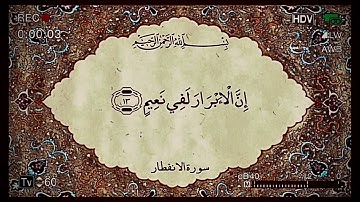 REC
0:00:03
HDV
LW
AWB
بسم الله الرحمن الرحيم
إِنَّ الْأَبْرَارَ لَفِي نَعِيمٍ ١٣
سورة الانفطار
Tv 60
dB40
12
0